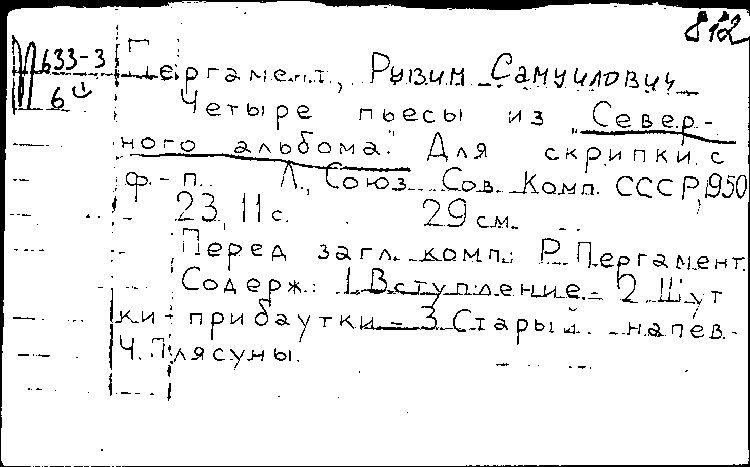 812
П633-3
6
Пергамент, Рувим Самуилович
Четыре пьесы из „Север-
ного альбома." Для скрипки с
ф.-п. Л., Союз Сов. Комп. СССР, 1950
23, 11 с. 29 см.
Перед загл. комп.: Р. Пергамент.
Содерж.: 1. Вступление - 2. Шут
ки-прибаутки - 3. Старый напев -
4. Плясуны.